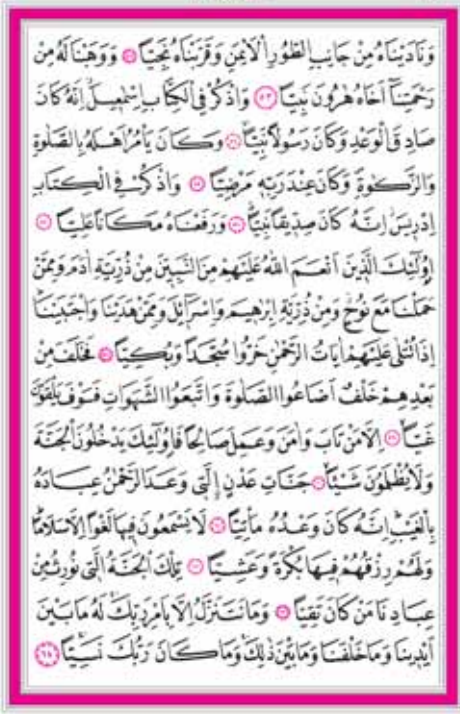 وَنَادَيْنَاهُ مِنْ جَانِبِ الطُّورِ الْاَيْمَنِ وَقَرَّبْنَاهُ نَجِيًّا ﴿٥٢﴾ وَوَهَبْنَا لَهُ مِنْ
رَحْمَتِنَٓا اَخَاهُ هٰرُونَ نَبِيًّا ﴿٥٣﴾ وَاذْكُرْ فِي الْكِتَابِ اِسْمٰعٖيلَ اِنَّهُ كَانَ
صَادِقَ الْوَعْدِ وَكَانَ رَسُولًا نَبِيًّا ﴿٥٤﴾ وَكَانَ يَأْمُرُ اَهْلَهُ بِالصَّلٰوةِ
وَالزَّكٰوةِ وَكَانَ عِنْدَ رَبِّهٖ مَرْضِيًّا ﴿٥٥﴾ وَاذْكُرْ فِي الْكِتَابِ
اِدْرٖيسَ اِنَّهُ كَانَ صِدّٖيقًا نَبِيًّا ﴿٥٦﴾ وَرَفَعْنَاهُ مَكَانًا عَلِيًّا ﴿٥٧﴾
اُو۬لٰٓئِكَ الَّذٖينَ اَنْعَمَ اللّٰهُ عَلَيْهِمْ مِنَ النَّبِيّٖنَ مِنْ ذُرِّيَّةِ اٰدَمَ وَمِمَّنْ
حَمَلْنَا مَعَ نُوحٍ وَمِنْ ذُرِّيَّةِ اِبْرٰهٖيمَ وَاِسْرَٓائٖلَ وَمِمَّنْ هَدَيْنَا وَاجْتَبَيْنَا
اِذَا تُتْلٰى عَلَيْهِمْ اٰيَاتُ الرَّحْمٰنِ خَرُّوا سُجَّدًا وَبُكِيًّا ﴿٥٨﴾ فَخَلَفَ مِنْ
بَعْدِهِمْ خَلْفٌ اَضَاعُوا الصَّلٰوةَ وَاتَّبَعُوا الشَّهَوَاتِ فَسَوْفَ يَلْقَوْنَ
غَيًّا ﴿٥٩﴾ اِلَّا مَنْ تَابَ وَاٰمَنَ وَعَمِلَ صَالِحًا فَاُو۬لٰٓئِكَ يَدْخُلُونَ الْجَنَّةَ
وَلَا يُظْلَمُونَ شَيْـًٔا ﴿٦٠﴾ جَنَّاتِ عَدْنٍ اِلَّتٖي وَعَدَ الرَّحْمٰنُ عِبَادَهُ
بِالْغَيْبِ اِنَّهُ كَانَ وَعْدُهُ مَأْتِيًّا ﴿٦١﴾ لَا يَسْمَعُونَ فٖيهَا لَغْوًا اِلَّا سَلَامًا
وَلَهُمْ رِزْقُهُمْ فٖيهَا بُكْرَةً وَعَشِيًّا ﴿٦٢﴾ تِلْكَ الْجَنَّةُ الَّتٖي نُورِثُ مِنْ
عِبَادِنَا مَنْ كَانَ تَقِيًّا ﴿٦٣﴾ وَمَا نَتَنَزَّلُ اِلَّا بِاَمْرِ رَبِّكَ لَهُ مَا بَيْنَ
اَيْدٖينَا وَمَا خَلْفَنَا وَمَا بَيْنَ ذٰلِكَ وَمَا كَانَ رَبُّكَ نَسِيًّا ﴿٦٤﴾